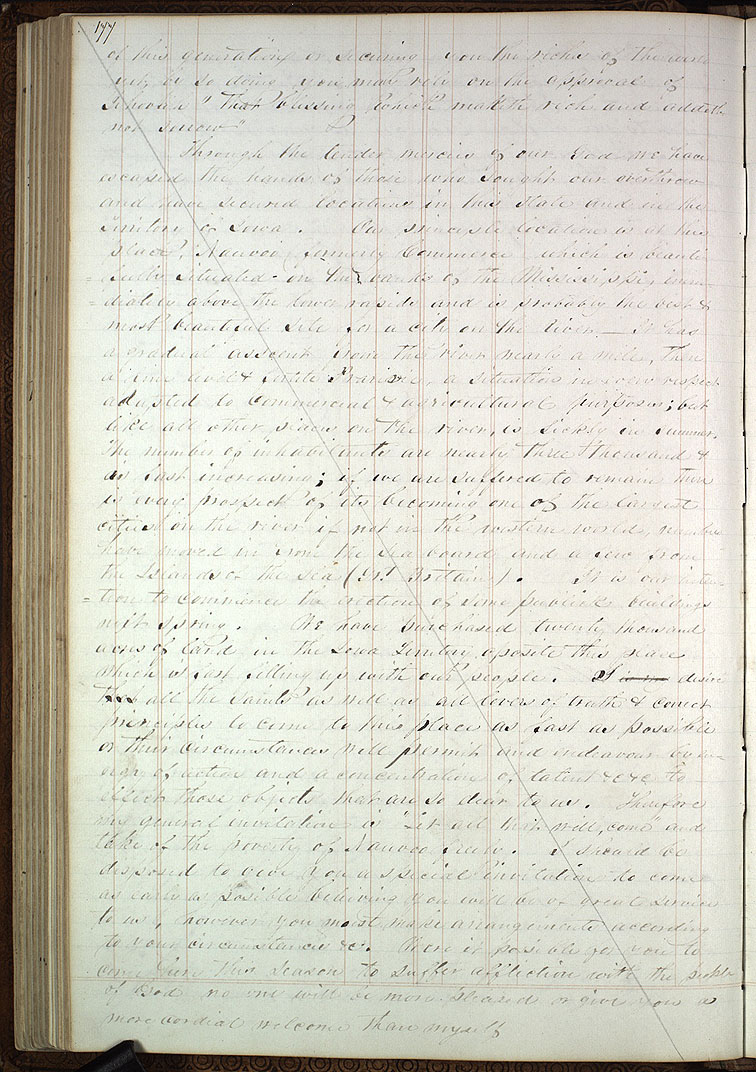 177
of this generation or securing you the richs of the world
yet, by so doing you may rely on the approval of
Jehovah "that blessing which maketh rich and addeth
not sorrow"
Through the tender mercies of our God we have
escaped the hands of those who sought our overthrow
and have secured locations in this state and in the
Territory of Iowa. Our principle location is at this
place, Nauvoo, (formerly Commerce) which is beauti
=fully situated on the banks of the Mississippi, imm
=diately above the lower rapids and is probably the best &
most beautiful site for a city on the river — It has
a gradual assent from the river nearly a mile, then
a fine level & fertile Prairie, a situation in every respect
adapted to commercial & agricultural purposes; but
like all other places on the river, is sickly in summer.
The number of inhabitants are nearly three thousand &
is fast increasing; if we are suffered to remain there
is every prospect of its becoming one of the largest
cities on the river if not in the western world, numbers
have moved in from the sea board and a few from
the Islands of the Sea (Grt. Britain). It is our inten-
=tion to commence the erection of some publick buildings
next spring. We have purchased twenty thousand
acres of land in the Iowa Territory oposite this place
which is fast filling up with our people. I desire
all the Saints as well as all lovers of truth & correct
principles to come to this place as fast as possible
or their circumstances will permit and endeavour by en-
ergy of action and a concentration of talent &c &c to
effect those objects that are so dear to us. Therefore
my general invitation is "Let all that will, come" and
take of the poverty of Nauvoo freely. I should be
disposed to give you a special invitation to come
as early as posible believing you will be of great service
to us, however you must make arrangements according
to your circumstances &c. Were it posible for you to
come here this season to suffer affliction with the people
of God no one will be more pleased or give you a
more cordial welcome than myself